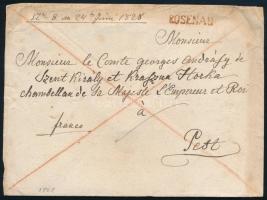 8 en 24 Juin 1828
ROSENAU
Monsieur
Monsieur le Comte georges Andrásy de
Szent Király et Kraszna Horka
chambellan de Sa Majesté L'Empereur et Roi
à
franco
Pest